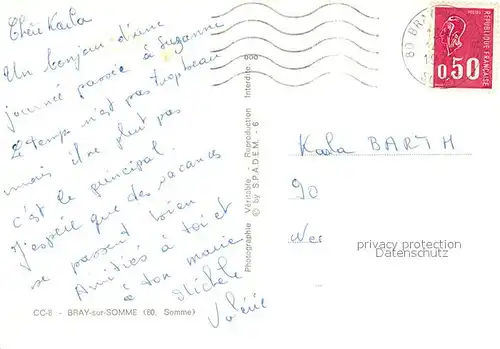 Chère Karla
Un bonjour d'une
journée passée à Suzanne
Le temps n'est pas trop beau
mais il ne pleut pas
c'est le principal.
J'espère que des vacances
se passent bien
Amitiés à toi et
à ton marie
Michèle
Valérie
CC-8 - BRAY-sur-SOMME (80. Somme)
Photographie Véritable - Reproduction Interdite
© by S.P.A.D.E.M. - 6
80 BRAY
REPUBLIQUE FRANÇAISE
0,50
Karla BARTH
90
Wer
privacy protection
Datenschutz